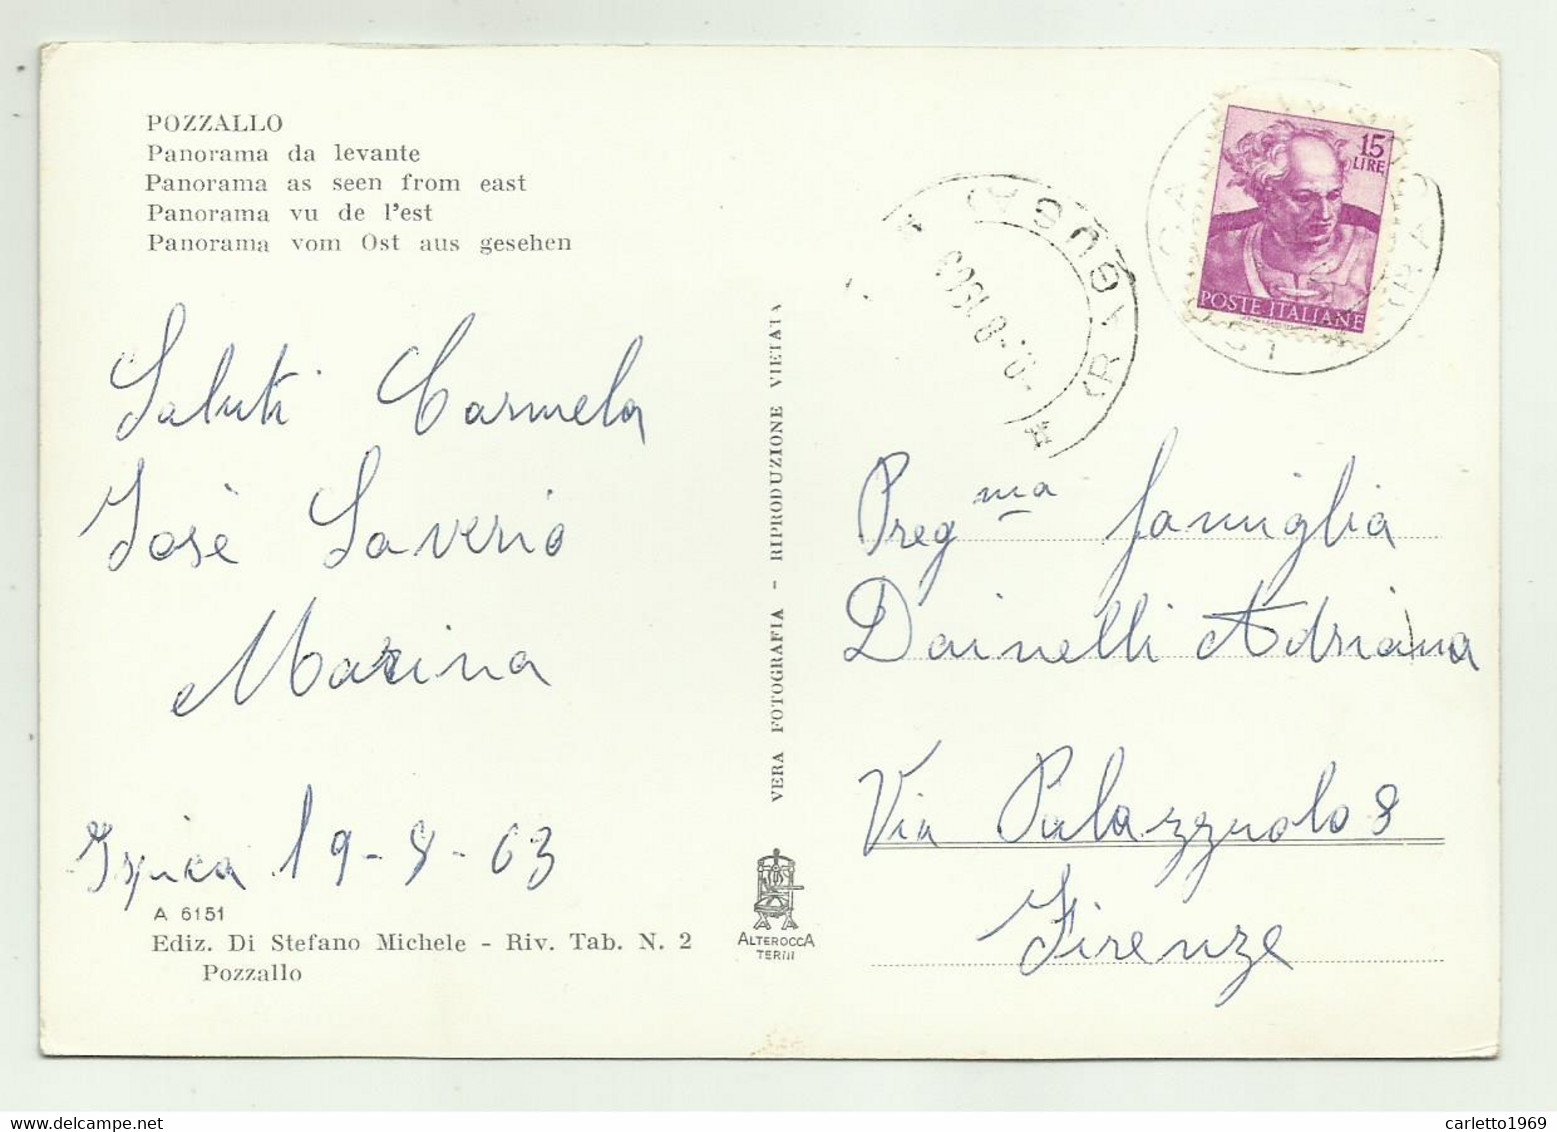 POZZALLO
Panorama da levante
Panorama as seen from east
Panorama vu de l'est
Panorama vom Ost aus gesehen
Saluti Carmela
Josè Saverio
Marina
Ispica 19-8-63
A 6151
Ediz. Di Stefano Michele - Riv. Tab. N. 2
Pozzallo
VERA FOTOGRAFIA - RIPRODUZIONE VIETATA
ALTEROCCA
TERNI
15
LIRE
POSTE ITALIANE
Preg ma famiglia
Dainelli Adriana
Via Palazzuolo 8
Firenze
carletto1969